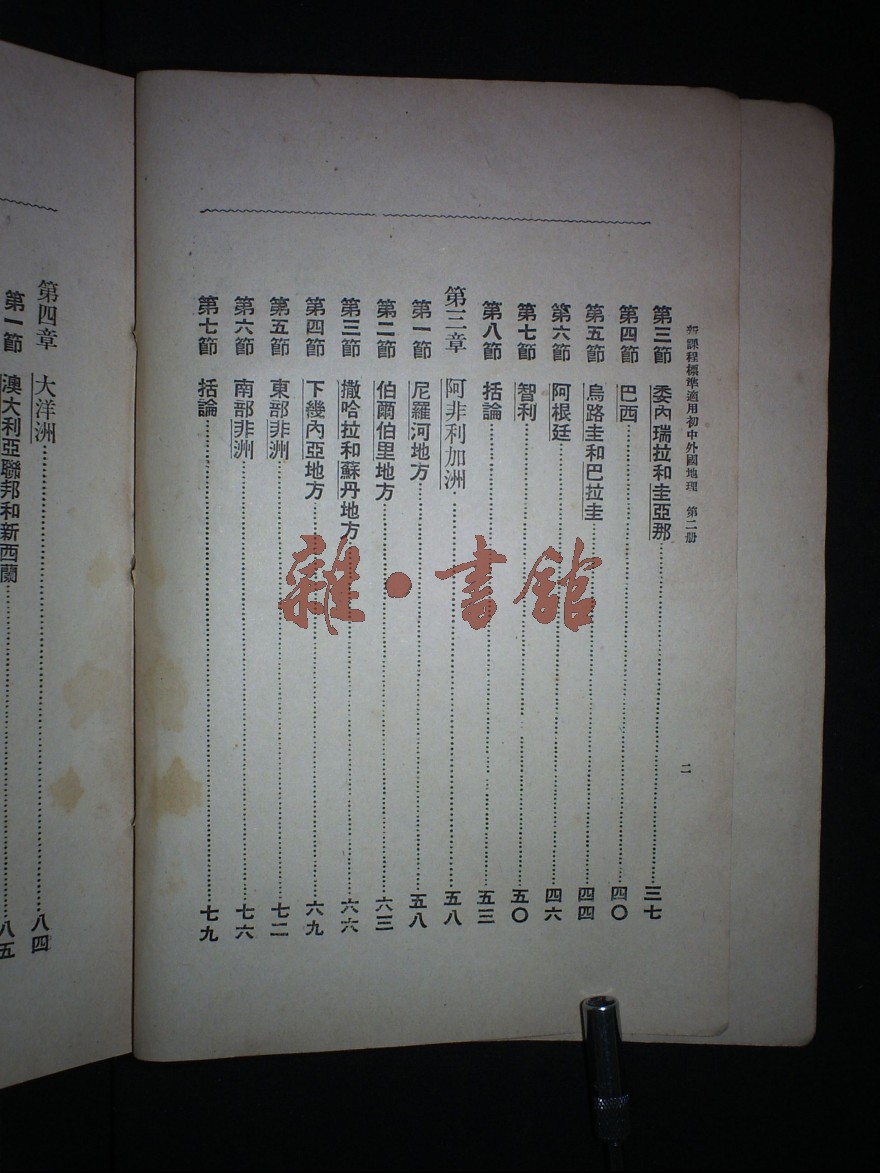 新課程標準適用初中外國地理　第二册
二
第三節　委內瑞拉和圭亞那……三七
第四節　巴西……四〇
第五節　烏路圭和巴拉圭……四四
第六節　阿根廷……四六
第七節　智利……五〇
第八節　括論……五三
第三章　阿非利加洲……五八
第一節　尼羅河地方……五八
第二節　伯爾伯里地方……六三
第三節　撒哈拉和蘇丹地方……六六
第四節　下幾內亞地方……六九
第五節　東部非洲……七二
第六節　南部非洲……七六
第七節　括論……七九
第四章　大洋洲……八四
第一節　澳大利亞聯邦和新西蘭……八五
雜·書館